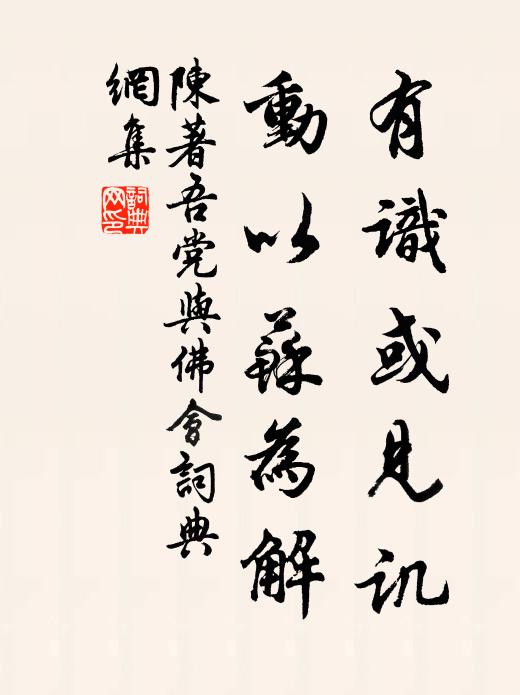 有識或見訊
動以蘇為解
陳著吾党與佛會詞典
網集
詞典
网印